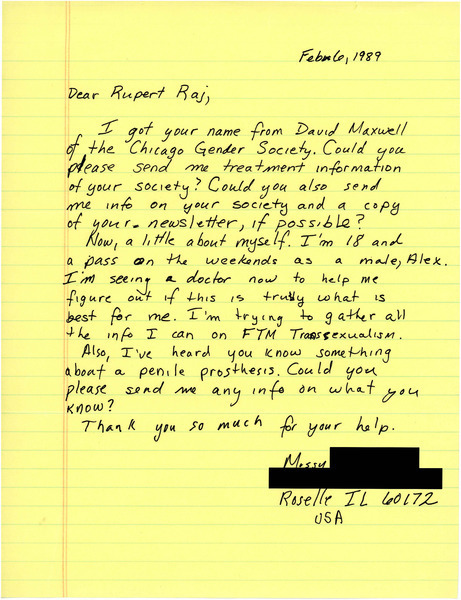 Feb 6, 1989
Dear Rupert Raj,
I got your name from David Maxwell
of the Chicago Gender Society. Could you
please send me treatment information
of your society? Could you also send
me info on your society and a copy
of your newsletter, if possible?
Now, a little about myself. I'm 18 and
a pass on the weekends as a male, Alex.
I'm seeing a doctor now to help me
figure out if this is truly what is
best for me. I'm trying to gather all
the info I can on FTM Transsexualism.
Also, I've heard you know something
about a penile prosthesis. Could you
please send me any info on what you
know?
Thank you so much for your help.
Roselle IL 60172
USA